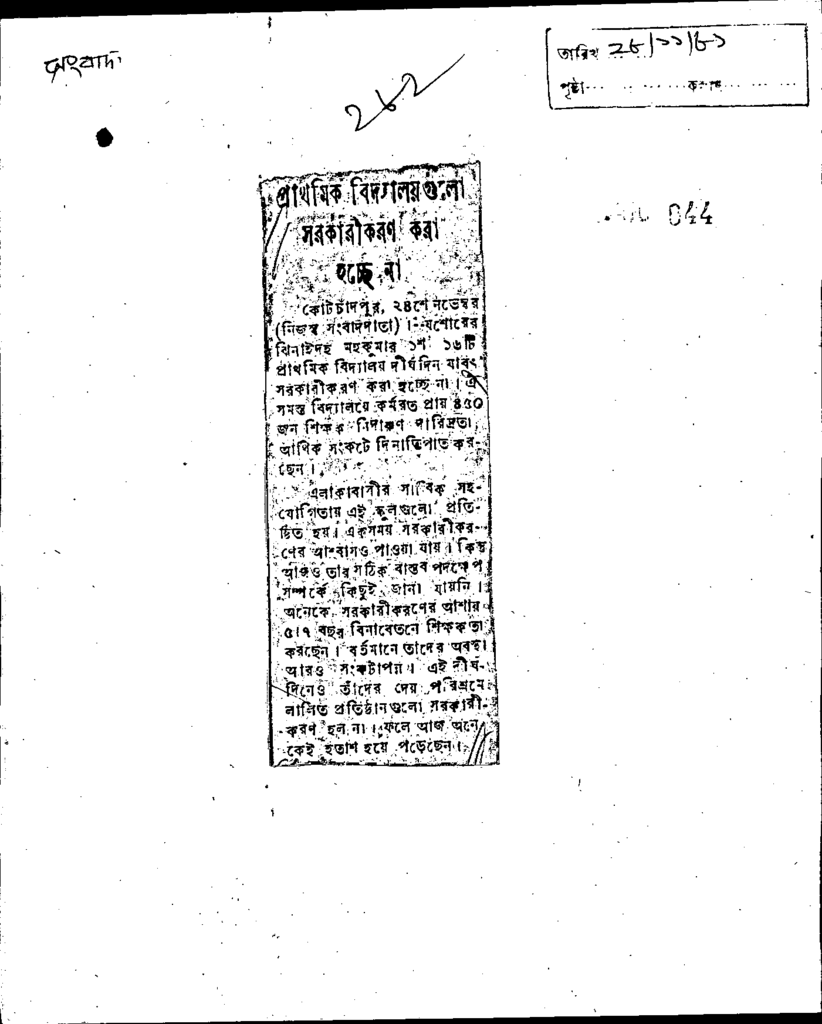 সংবাদ
তারিখ ২৮/১১/৮১
পৃষ্ঠা
২৬২
044
প্রাথমিক বিদ্যালয়গুলো
সরকারীকরণ করা
হচ্ছে না
কোটচাঁদপুর, ২৪শে নভেম্বর
(নিজস্ব সংবাদদাতা)। যশোরের
ঝিনাইদহ মহকুমার ১শ' ১৬টি
প্রাথমিক বিদ্যালয় দীর্ঘদিন যাবৎ
সরকারীকরণ করা হচ্ছে না। ঐ
সমস্ত বিদ্যালয়ে কর্মরত প্রায় ৪৫০
জন শিক্ষক নিদারুণ দারিদ্রতা,
আর্থিক সংকটে দিনাতিপাত কর-
ছেন।
এলাকাবাসীর সার্বিক সহ-
যোগিতায় এই স্কুলগুলো প্রতি-
ষ্ঠিত হয়। একসময় সরকারীকর-
ণের আশ্বাসও পাওয়া যায়। কিন্তু
আজও তার সঠিক বাস্তব পদক্ষেপ
সম্পর্কে কিছুই জানা যায়নি।
অনেকে সরকারীকরণের আশায়
৫।৭ বছর বিনাবেতনে শিক্ষকতা
করছেন। বর্তমানে তাদের অবস্থা
আরও সংকটাপন্ন। এই দীর্ঘ-
দিনেও তাঁদের দেয় পরিশ্রমে
লালিত প্রতিষ্ঠানগুলো সরকারী-
করণ হল না। ফলে আজ অনে-
কেই হতাশ হয়ে পড়েছেন।